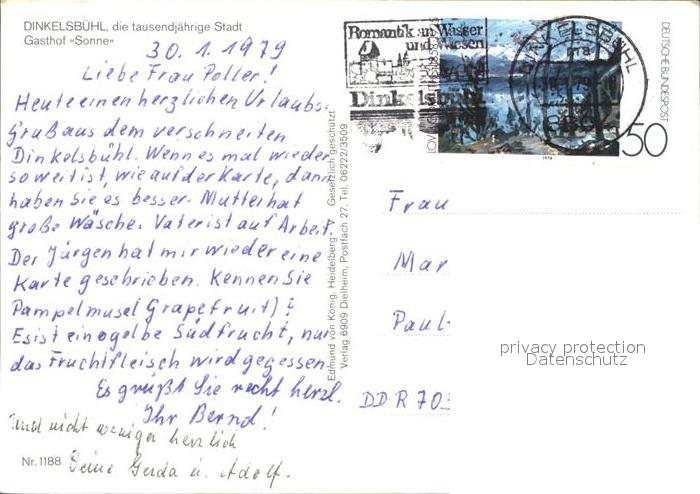 DINKELSBÜHL, die tausendjährige Stadt
Gasthof »Sonne«
30.1.1979
Liebe Frau Poller!
Heute einen herzlichen Urlaubs-
gruß aus dem verschneiten
Dinkelsbühl. Wenn es mal wieder
so weit ist, wie auf der Karte, dann
haben Sie es besser. Mutter hat
große Wäsche. Vater ist auf Arbeit.
Der Jürgen hat mir wieder eine
Karte geschrieben. Kennen Sie
Pampelmuse (Grapefruit)?
Es ist eine gelbe Südfrucht, nur
das Fruchtfleisch wird gegessen.
Es grüßt Sie recht herzl.
Ihr Bernd!
Und nicht weniger herzlich
Deine Gerda u. Adolf.
Nr. 1188
Edmund von König, Heidelberg · Gesetzlich geschützt
Verlag 6909 Dielheim, Postfach 27, Tel. 06222/3509
Romantik an Wasser
und Wiesen
Dinkelsbühl
DINKELSBÜHL
DEUTSCHE BUNDESPOST
50
1978
Frau
Mar
Paul-
DDR 703
privacy protection
Datenschutz